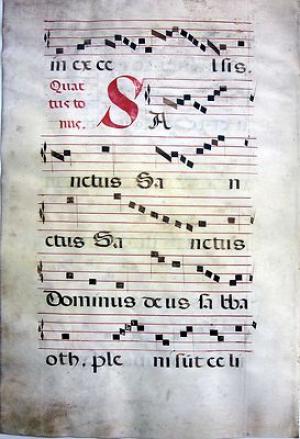 in exce lsis.
Quar
tus to
nus. SA
nctus Sa n
ctus Sa nctus
Dominus deus saba
oth. ple ni sūt celi